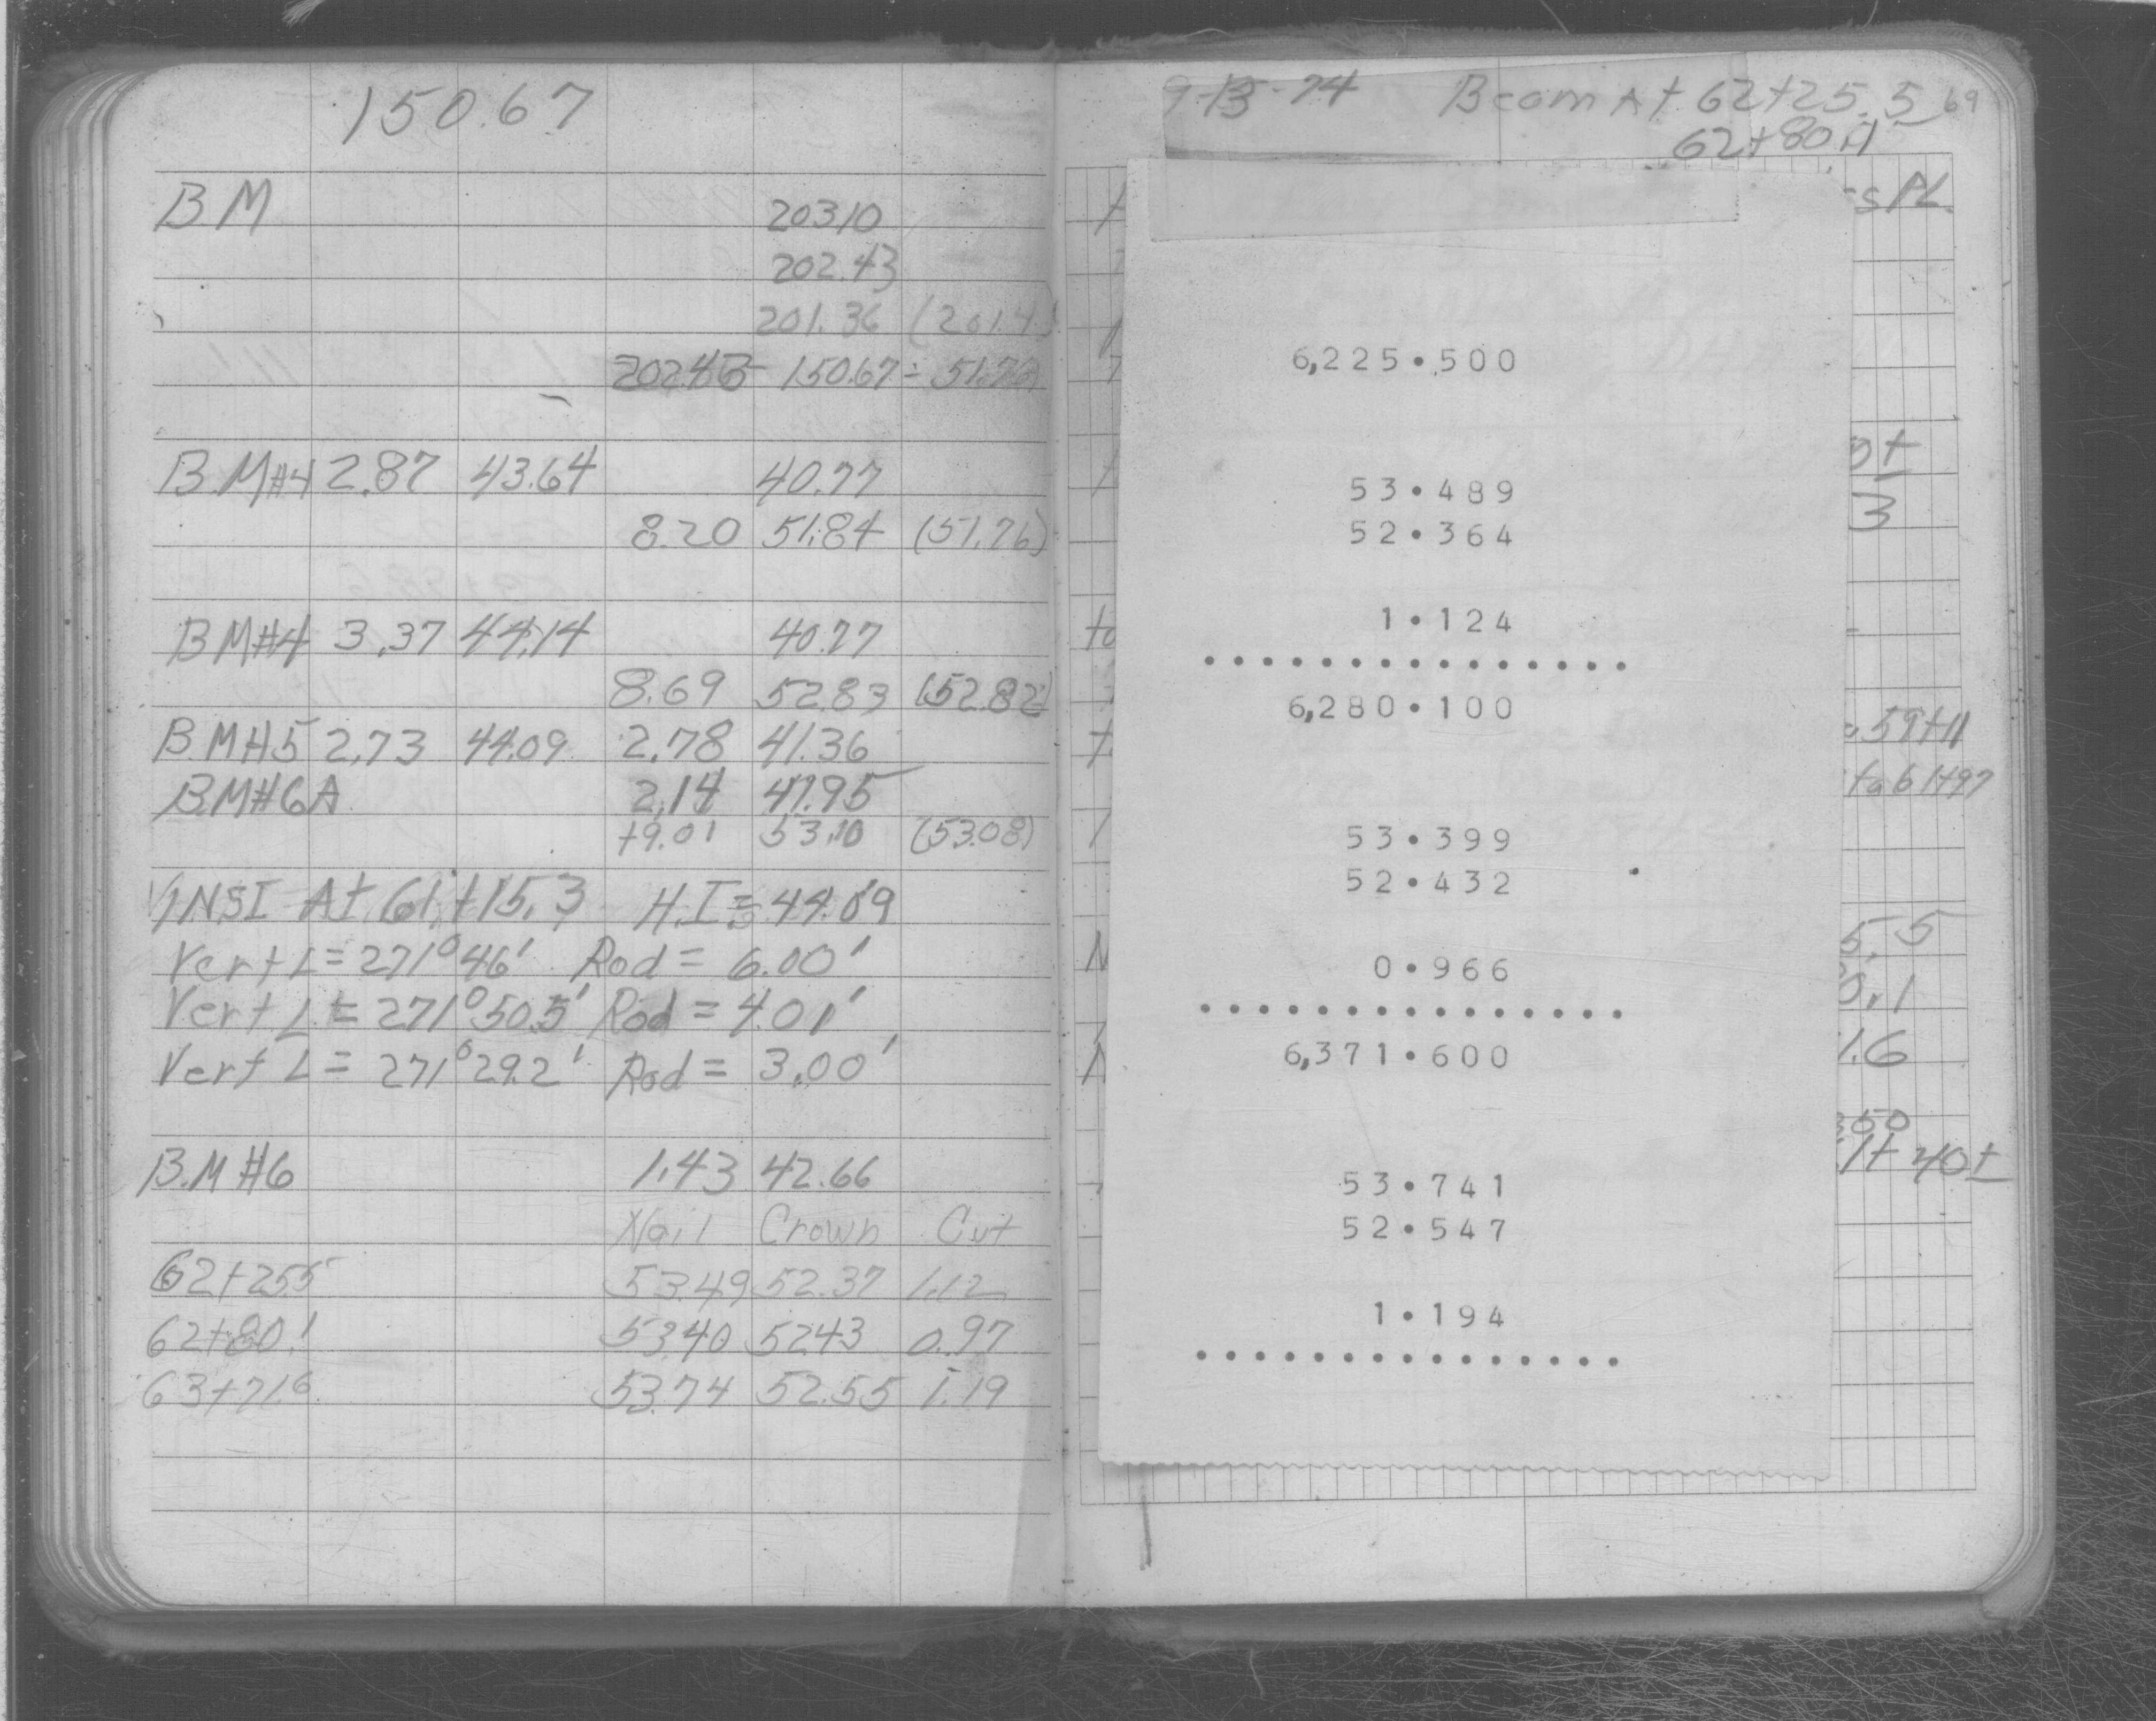 150.67
B.M 203.10
202.43
201.36 (201.4)
202.43 - 150.67 = 51.76
B.M#4 2.87 43.64 40.77
8.20 51.84 (51.76)
B.M#4 3.37 44.14 40.77
8.69 52.83 (52.82)
B.M#5 2.73 44.09 2.78 41.36
B.M#6A 2.14 41.95
+9.01 53.10 (53.08)
INSI At 61+15.3 H.I = 44.09
Vert ∠ = 271°46' Rod = 6.00'
Vert ∠ = 271°50.5' Rod = 4.01'
Vert ∠ = 271°29.2' Rod = 3.00'
B.M #6 1.43 42.66
Nail Crown Cut
62+25.5 53.49 52.37 1.12
62+80.1 53.40 52.43 0.97
63+71.6 53.74 52.55 1.19
9-13-74 Beam At 62+25.5 69
62+80.1
ss PL.
6,225.500
53.489
52.364
1.124
................
6,280.100
53.399
52.432
0.966
................
6,371.600
53.741
52.547
1.194
................
3
59+11
sta 61+97
5.5
0.1
1.6
350
1+40±